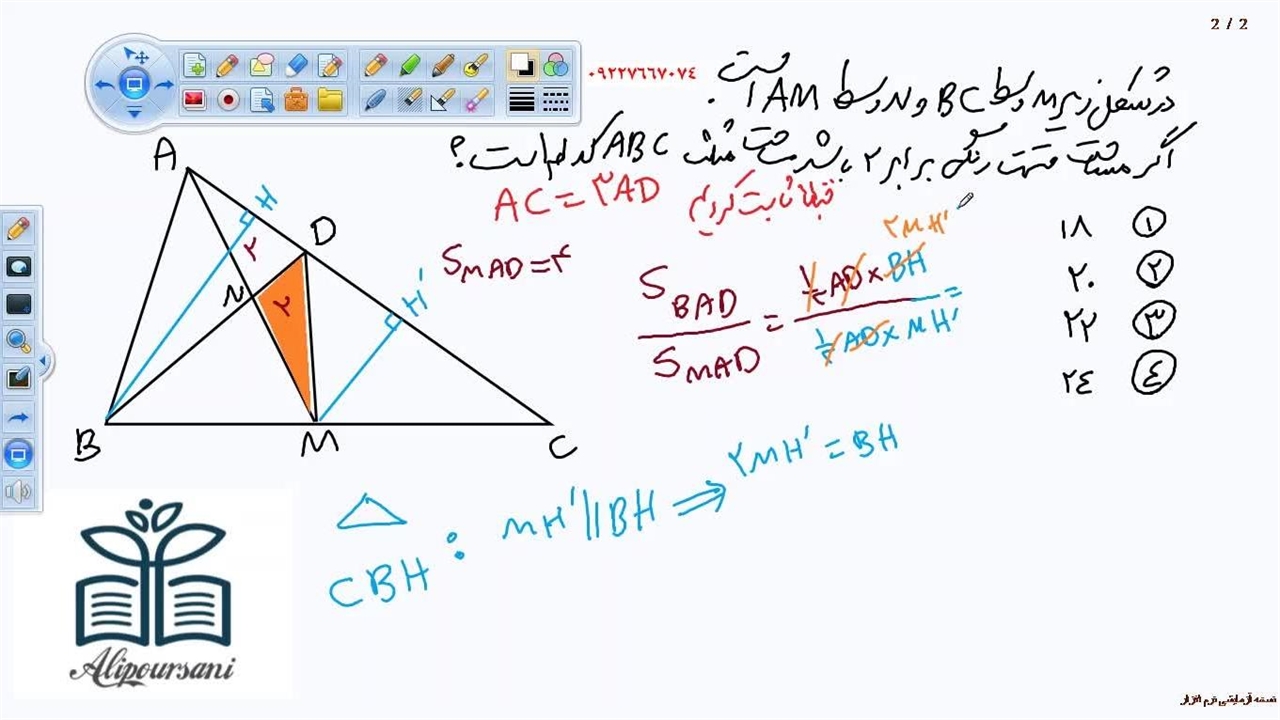 2 / 2
۰۹۲۲۷۶۶۷۰۷۴
در شکل زیر M وسط BC و N وسط AM است.
اگر مساحت قسمت رنگی برابر ۲ باشد مساحت مثلث ABC کدام است؟
AC = ۳AD قبلا ثابت کردیم
① ۱۸
② ۲۰
③ ۲۲
④ ۲٤
S MAD = ۴
S BAD / S MAD = ½ AD × BH / ½ AD × MH' =
۲MH'
A
H
D
۲
N
۲
H'
B
M
C
△
CBH : MH' || BH ⇒ ۲MH' = BH
Alipoursani
نسخه آزمایشی نرم افزار